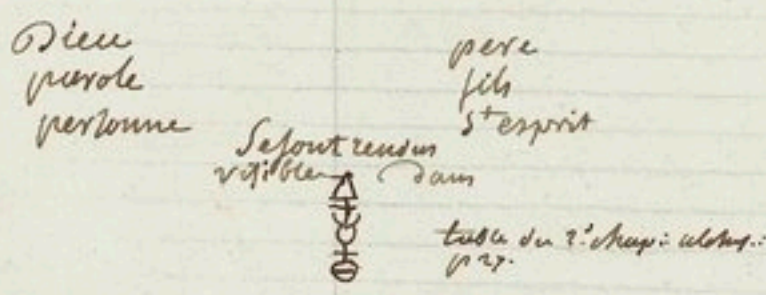 Dieu
parole
personne
pere
fils
St esprit
Se sont rendus
visible dans
table du 2e chap:
p 27.